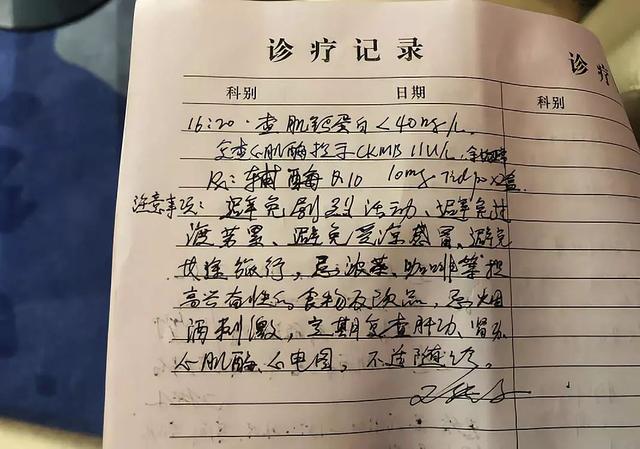 诊疗记录
诊疗
科别 日期
科别
16:20.查肌钙蛋白<40ng/L.
复查心肌酶提示CKMB 11U/L.
Rx:辅酶Q10 10mg tid po x2盒
注意事项:避免剧烈活动、避免过
渡劳累、避免受凉感冒、避免
长途旅行,忌浓茶、咖啡等提
高兴奋性的食物及饮品,忌烟
酒刺激,定期复查肝功、肾功、
心肌酶、心电图,不适随诊。